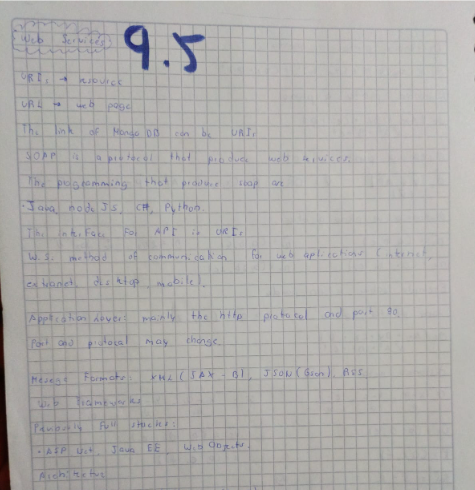 Web Services
9.5
URI: → resource
URL → web page
The link of Mongo DB can be URI.
SOAP is a protocol that produce web services.
The programming that produce soap are
· Java, node JS, C#, Python.
The interface for API is URI.
W.S: method of communication for web aplications (internet,
extranet, desktop, mobile).
Application Layer: mainly the http protocol and port 80.
Port and protocol may change.
Message Formats: XML (JAX-B), JSON (Gson), RSS
Web frameworks
Previously Full stacks:
· ASP Net, Java EE, Web Objects.